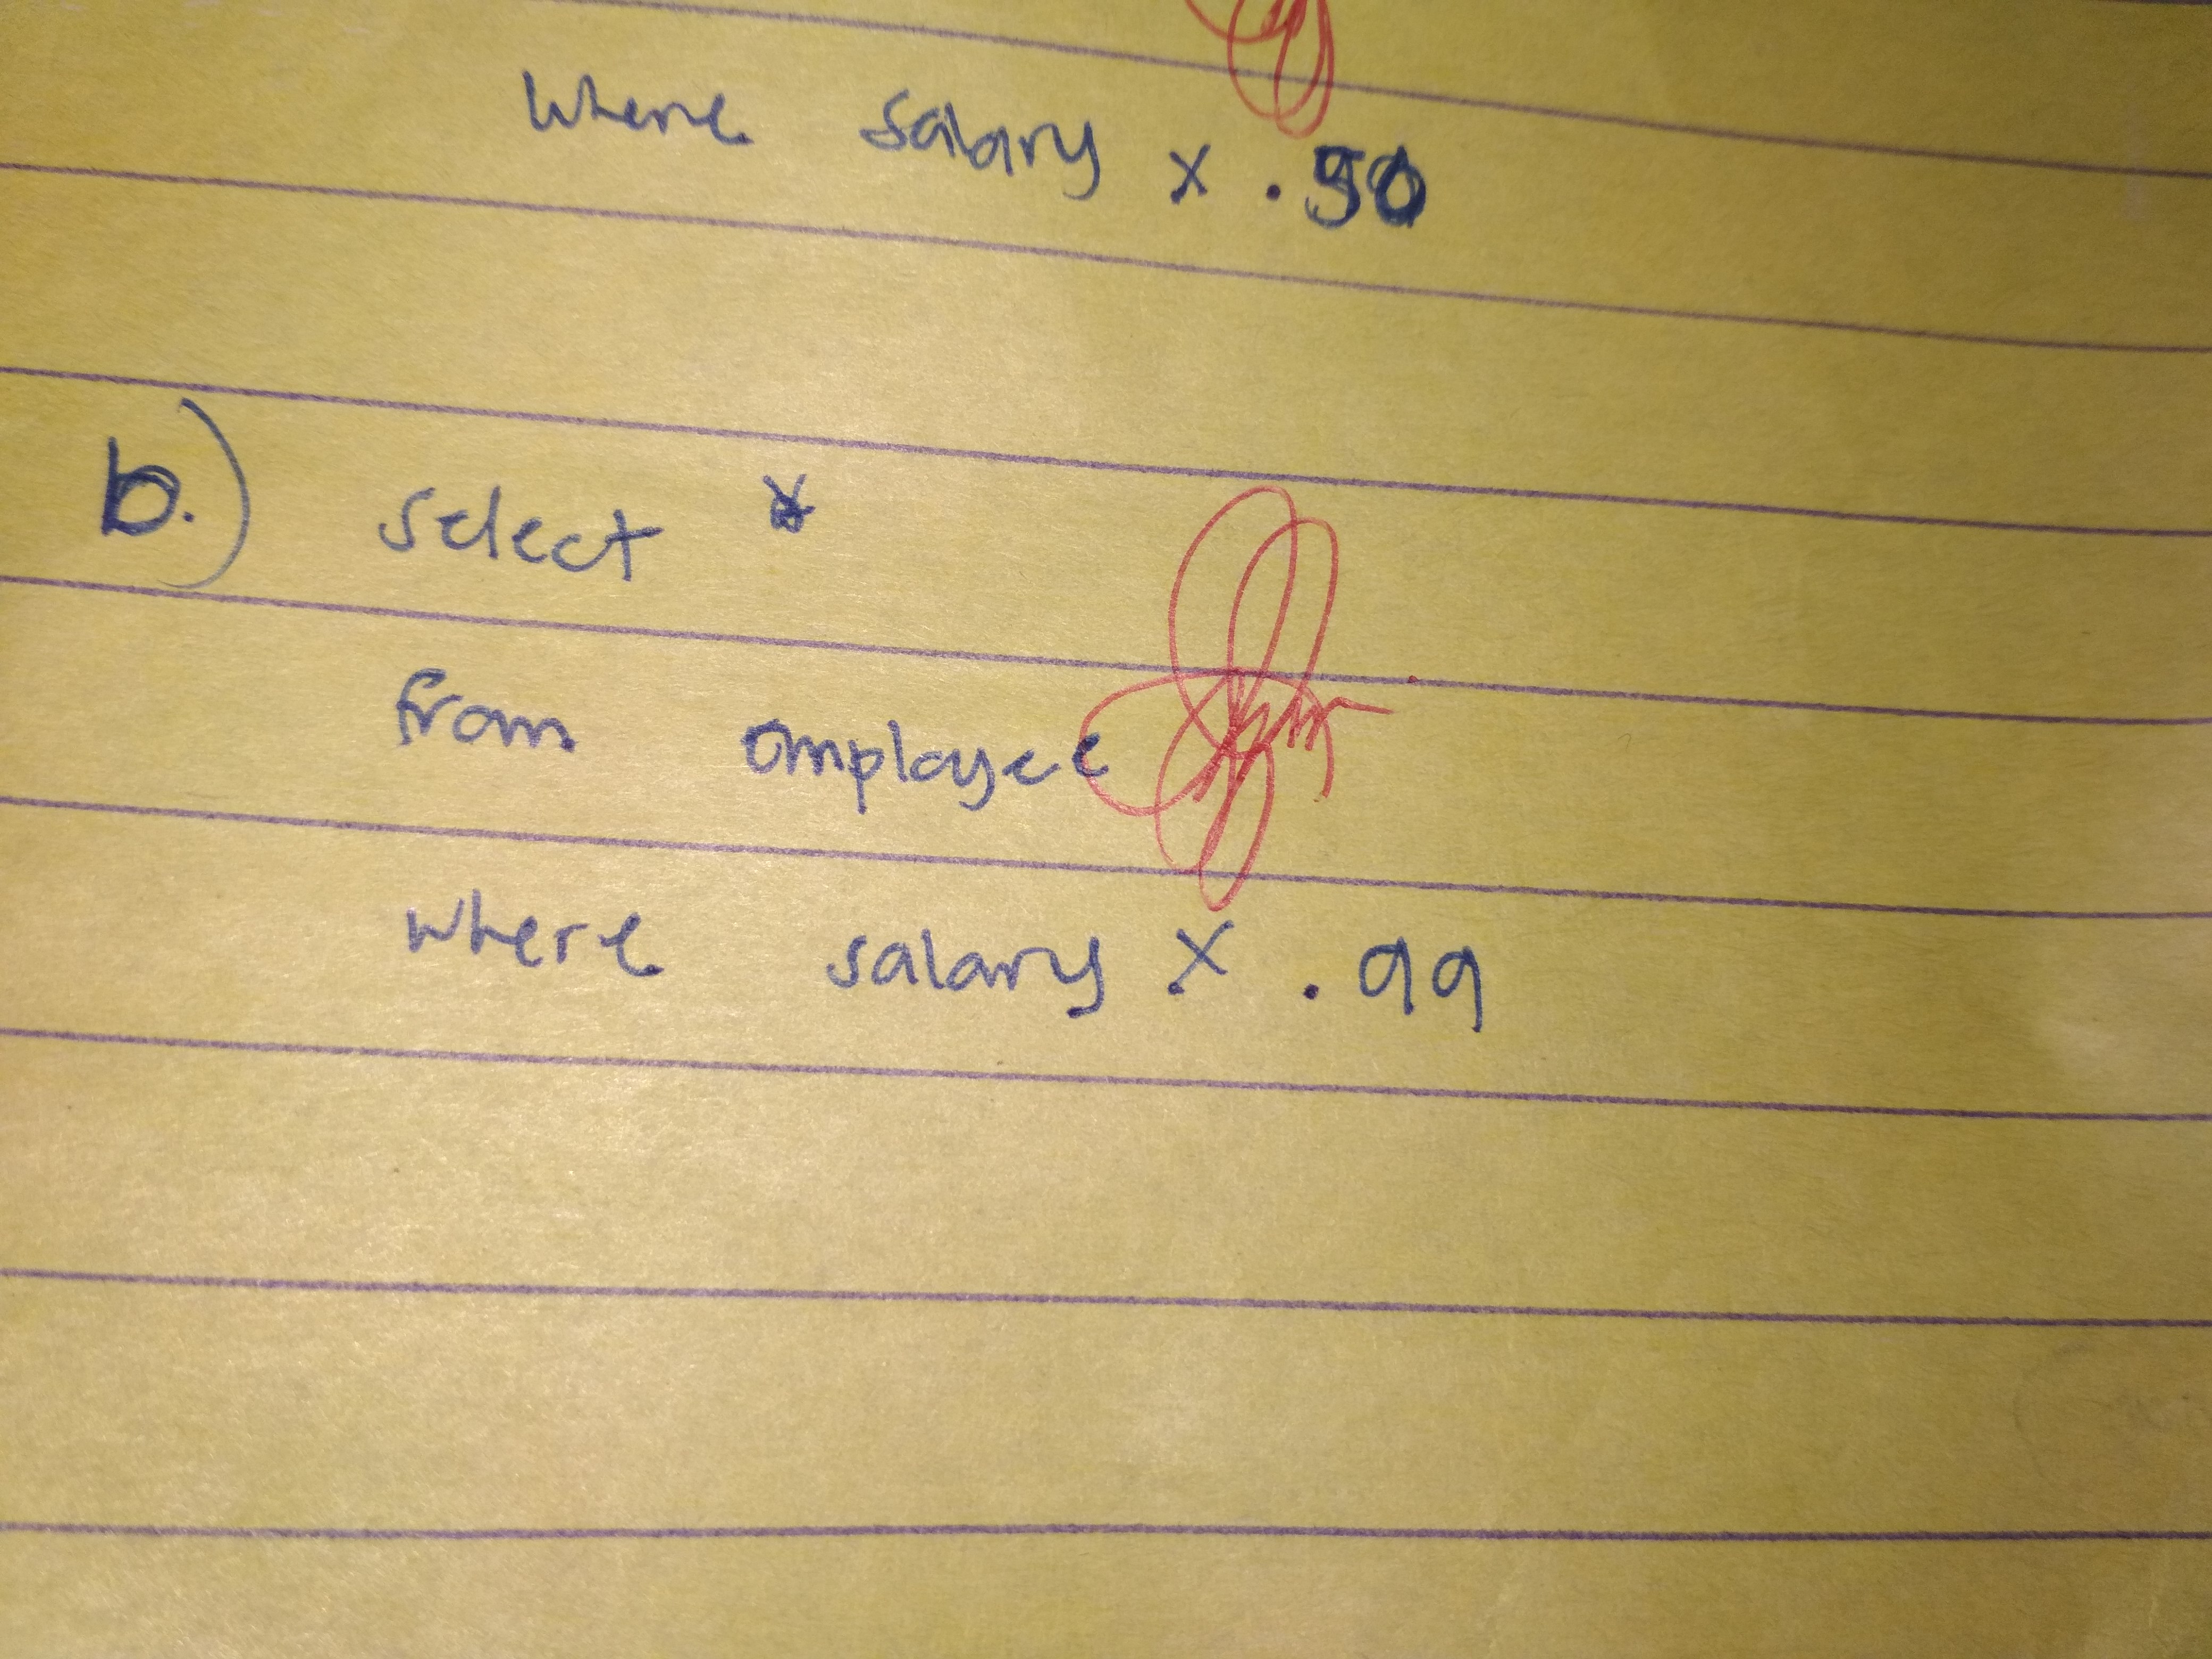 where salary x .50
b.) select *
from employee
where salary x .99